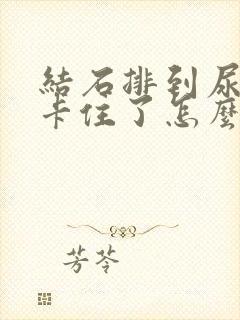 結石排到尿
卡住了怎麼
芳苓